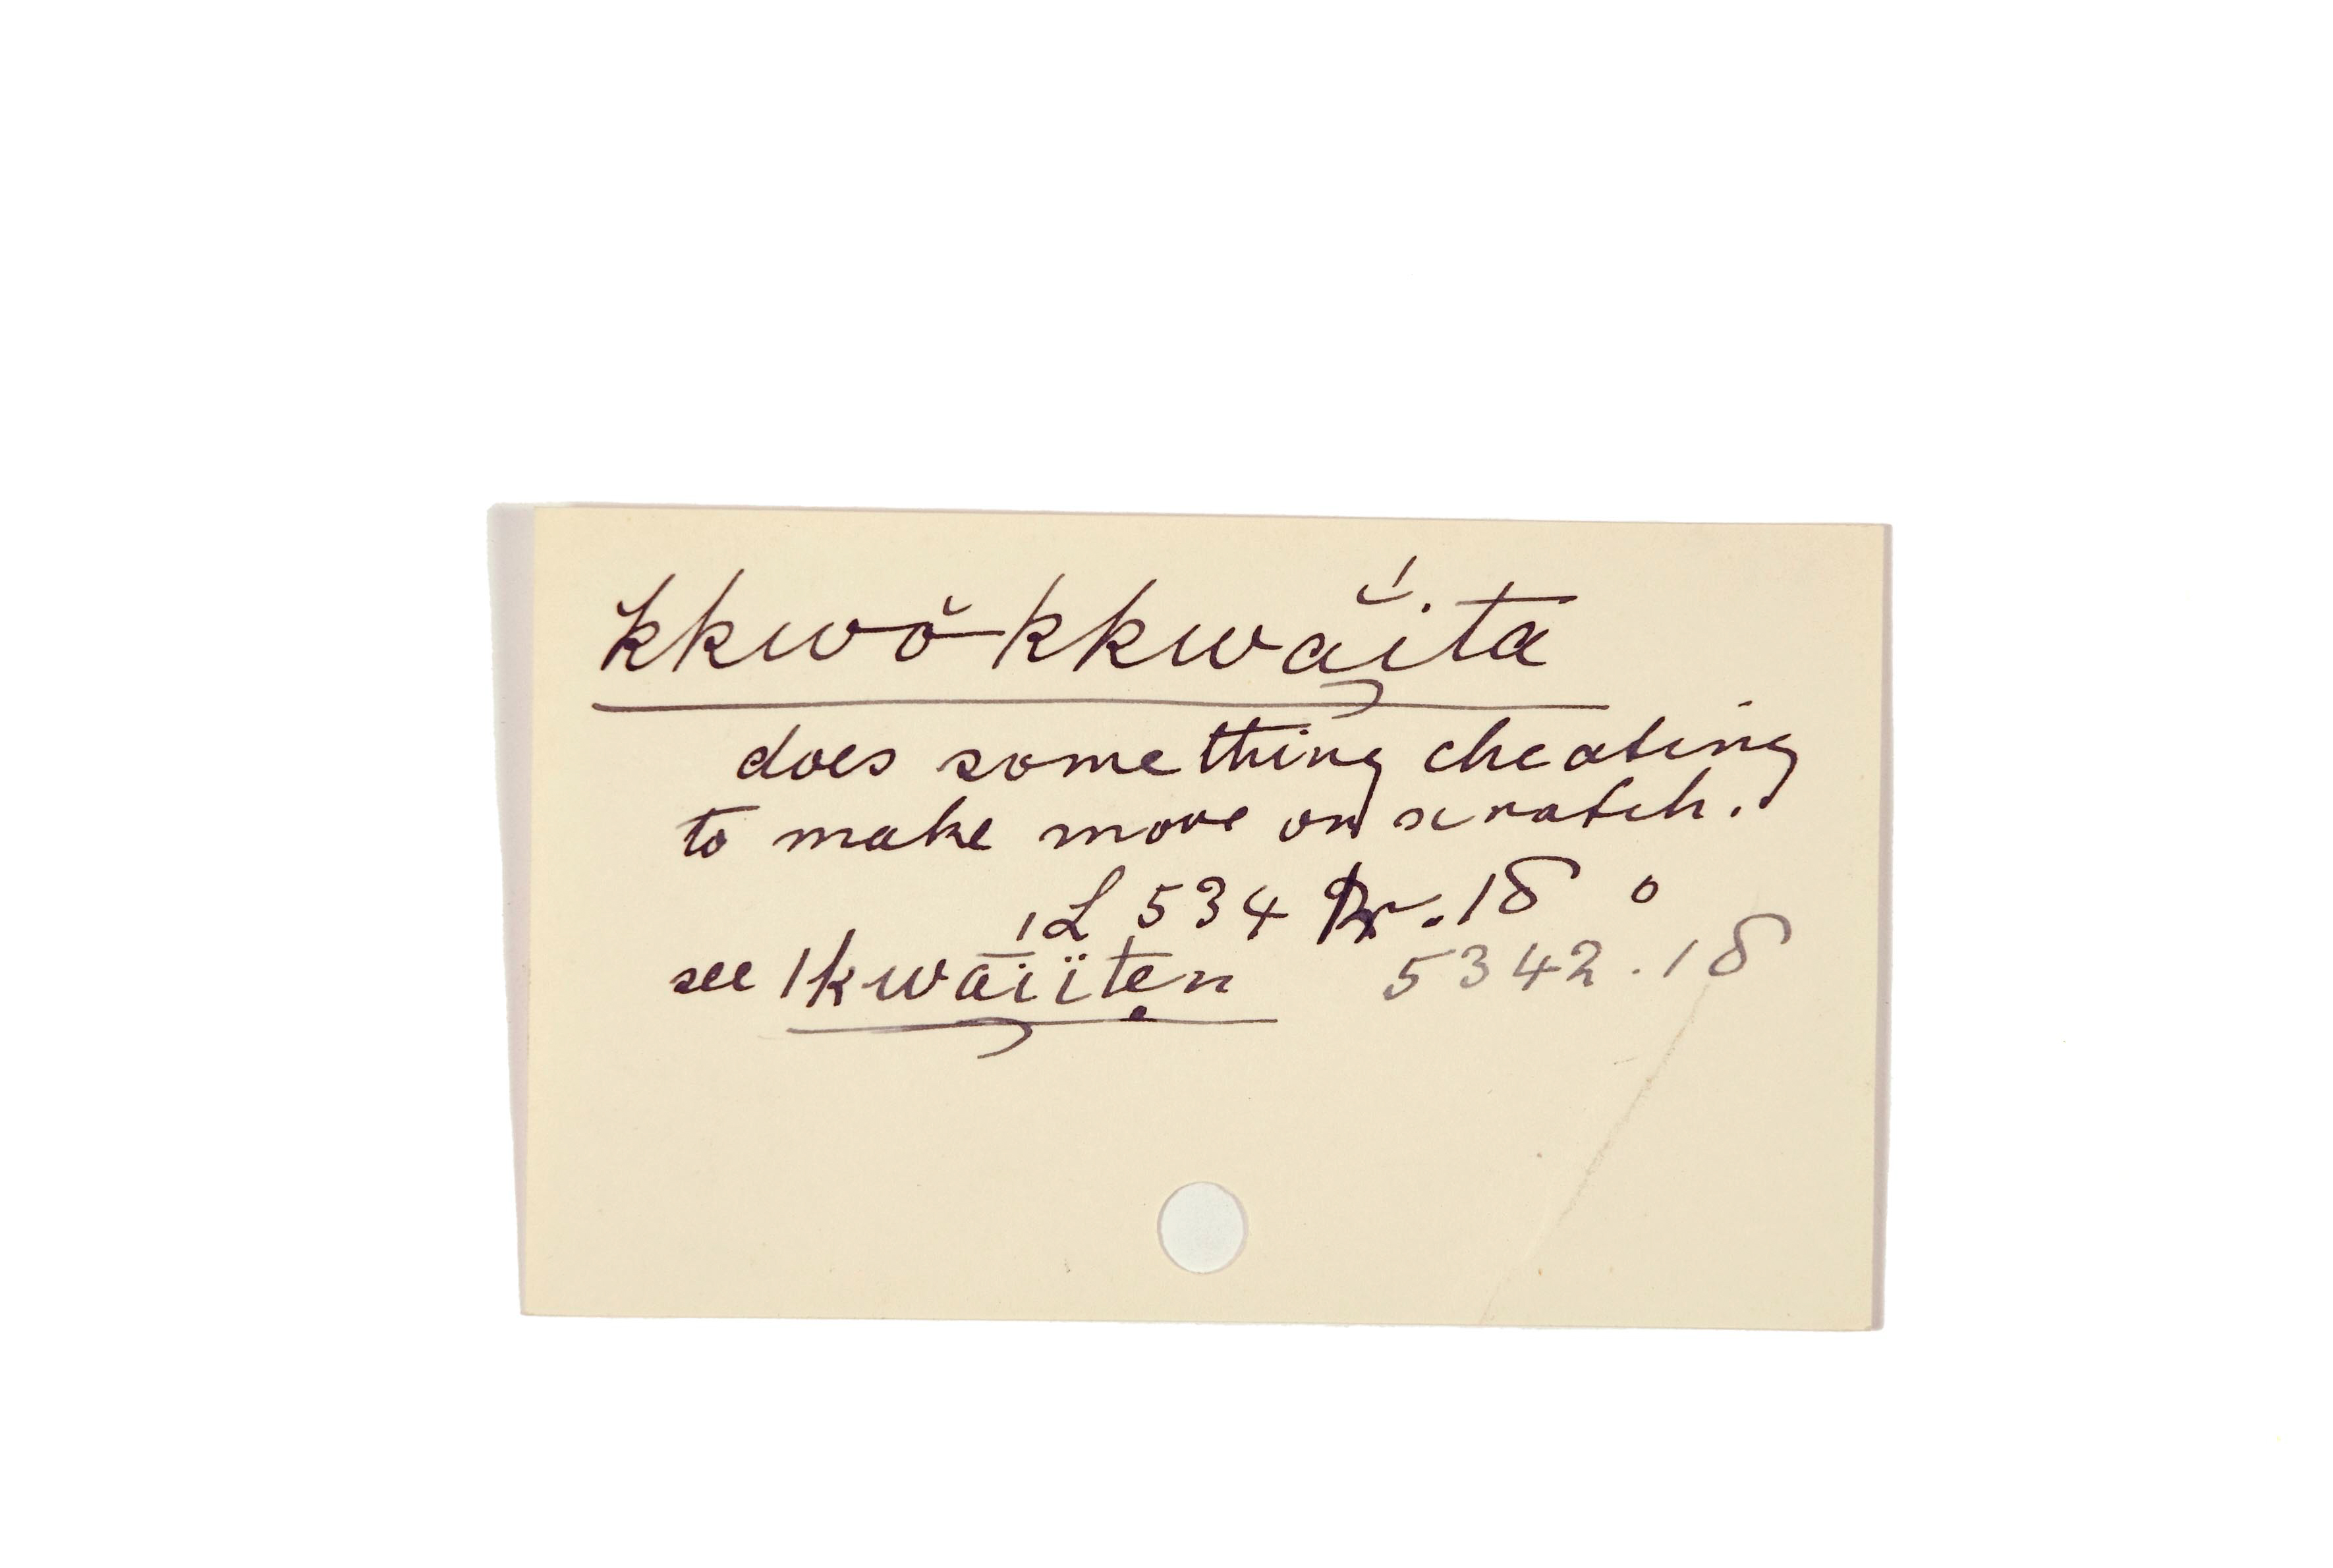 kkwŏ-kkwắita
does something cheating
to make move or scratch.
1L 534 Pr. 18 o
see 1kwāiïtẹn 5342.18